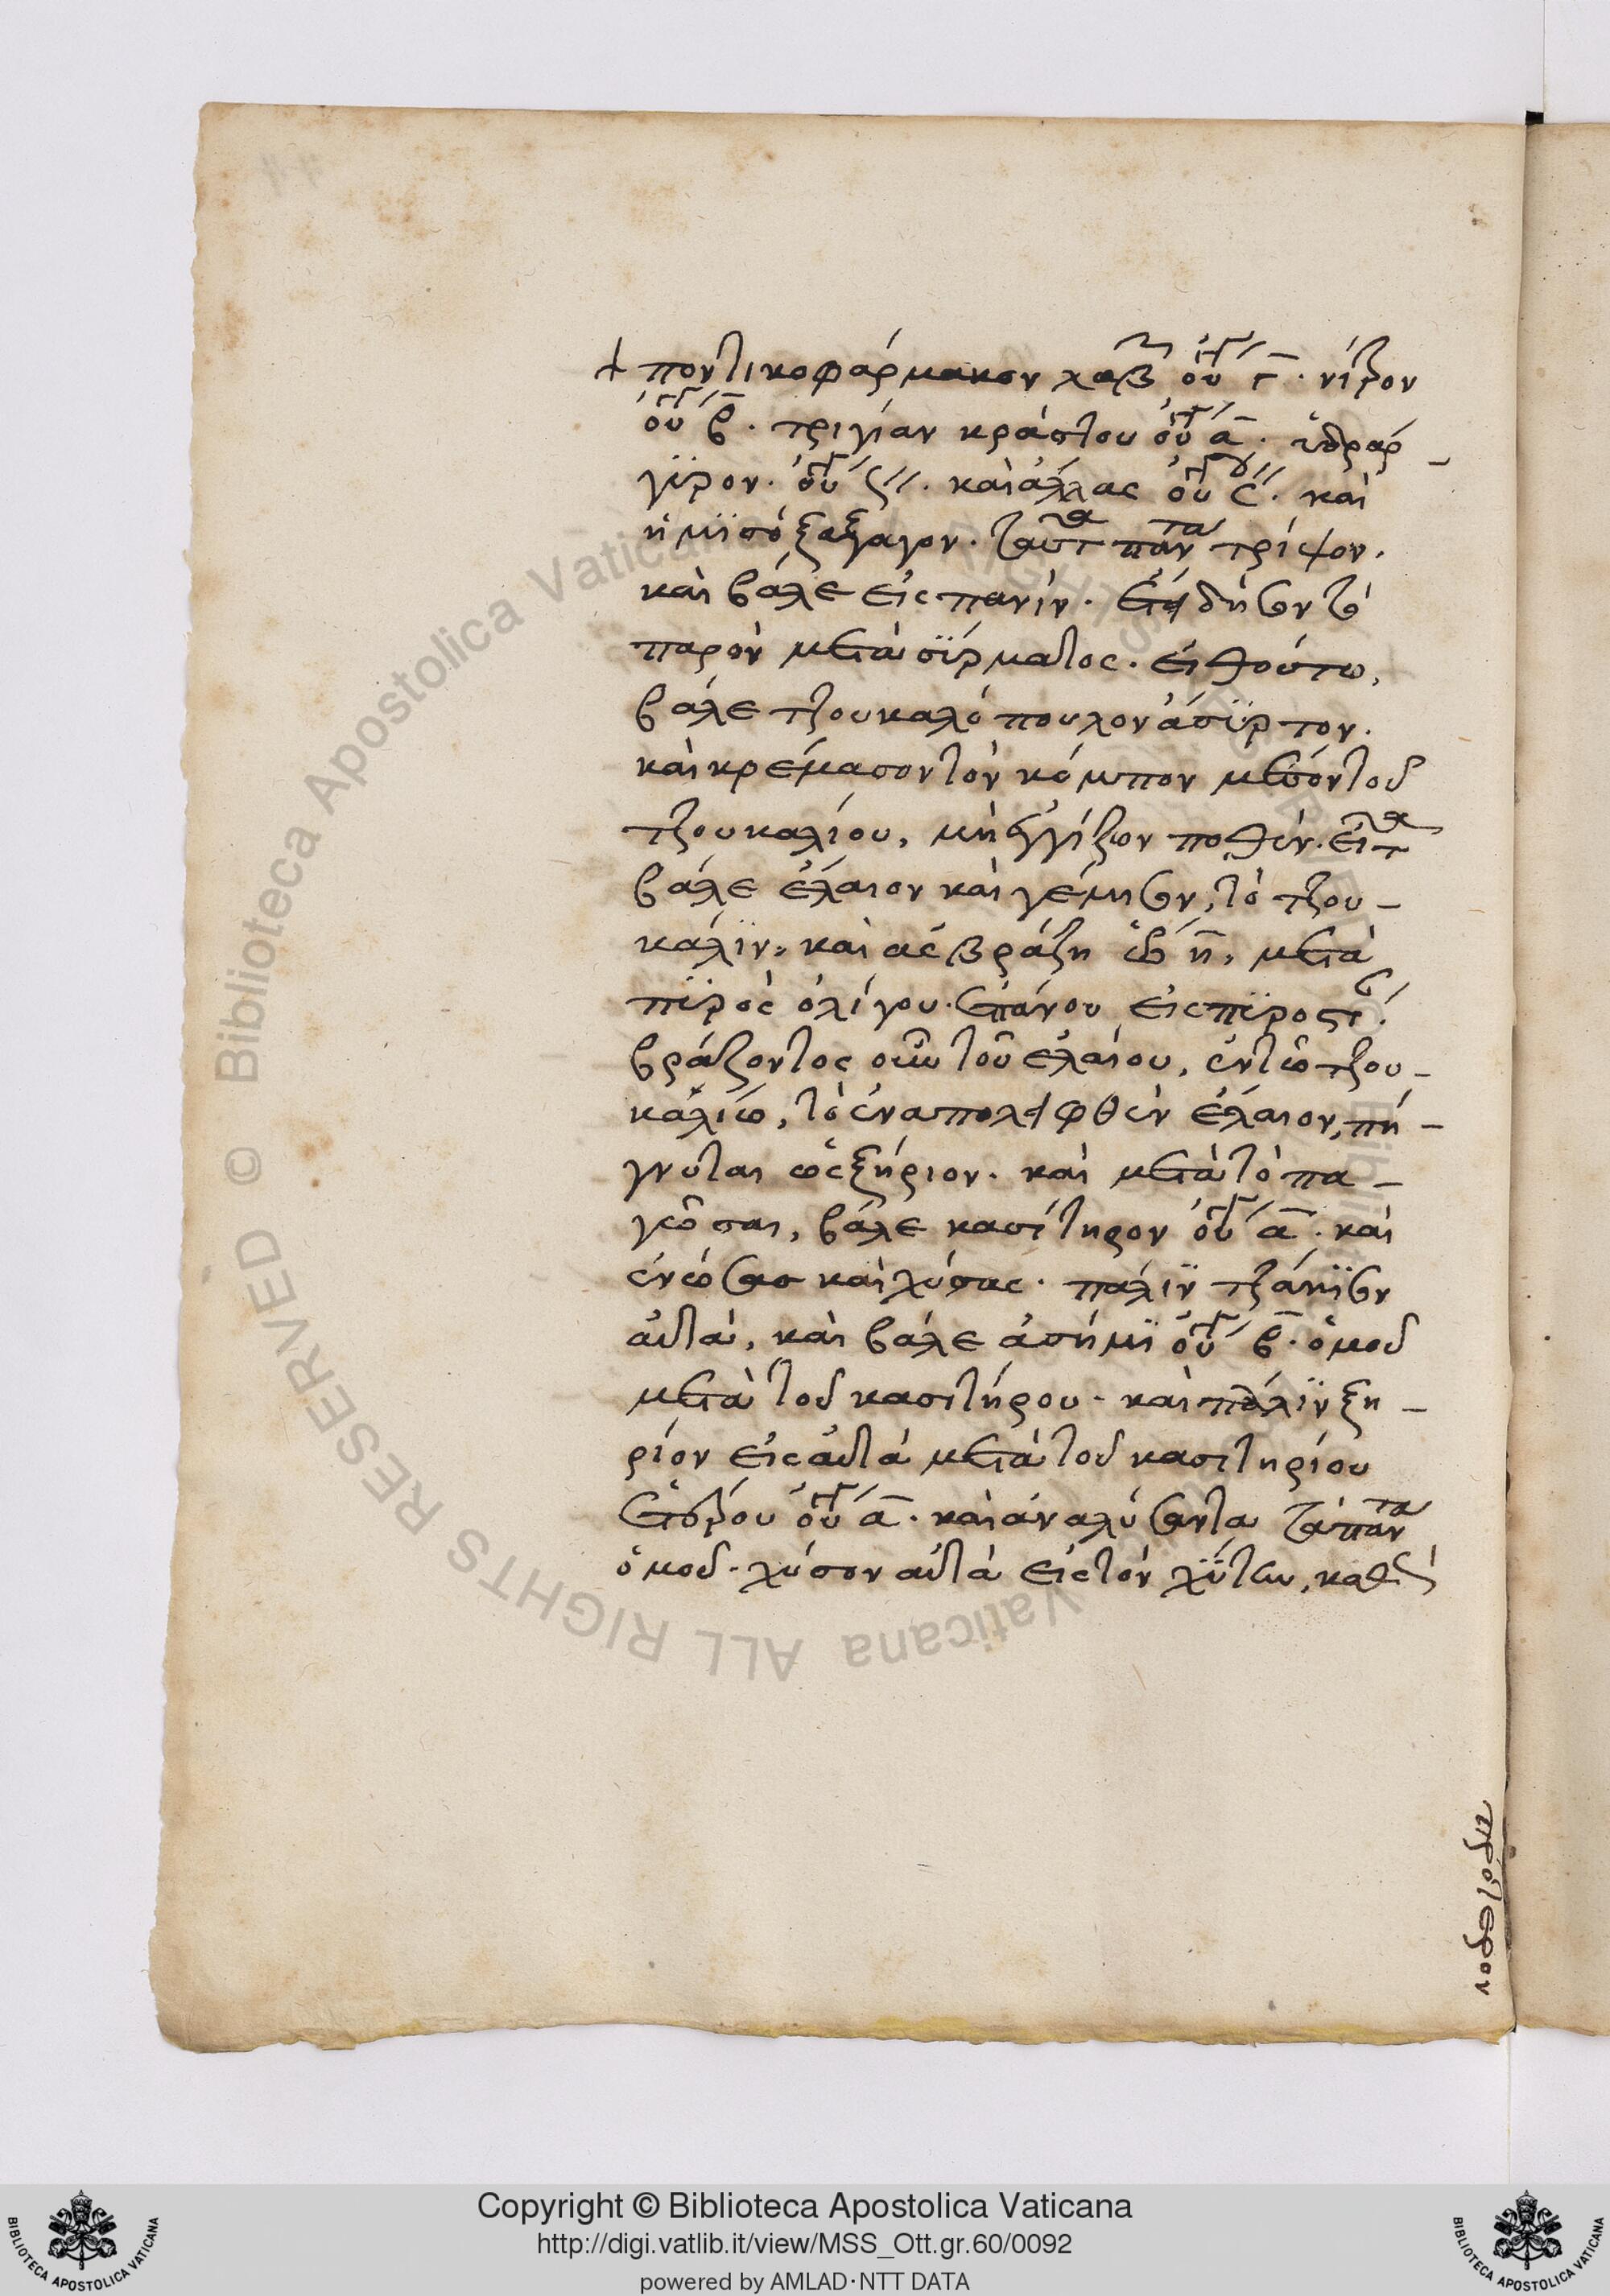 ποντικοφάρμακον λαβ οὐγ γ̅. νίτρον
οὐγ β̅. τριγίαν κράστου οὐγ α̅. ὑδραρ-
γϋρον. οὐγ ς//. καὶ ἅλας οὐγ ς//. καὶ
ἡμϊσὸ ξεξαγον. ταῦτα πάντα τρίψον.
καὶ βάλε εἰς πανὶν. δῆσον τὸ
παρὸν μετὰ σΐρματος. εἶθούτω,
βάλε τζουκαλόπουλον ἄσϋρτον.
καὶ κρέμασον τὸν κόμπον μέσον τοῦ
τζουκαλίου, μὴ ἐγγίζων ποθὲν. εἶτα
βάλε ἔλαιον καὶ γέμησον, τὸ τζου-
κάλϊν, καὶ ἂς βράζη η̅, μετὰ
πϋρὸς ὀλίγου. ἐπάνου εἰς πϋροστ.
βράζοντος οὖν τοῦ ἐλαίου, ἐν τῶ τζου-
καλίω, τὸ ἐναπολειφθὲν ἔλαιον, πή-
γνυται ὡς ξήριον. καὶ μετὰ τὸ πα-
γῶσαι, βάλε κασίτηρον οὐγ α̅. καὶ
ἑνώσας καὶ λύσας. πάλϊν τζάκϊσον
αὐτὰ, καὶ βάλε ἀσήμϊ οὐγ β̅. ὁμοῦ
μετὰ τοῦ κασιτήρου. καὶ πάλϊν ξη-
ρίον εἰς αὐτὰ μετὰ τοῦ κασιτηρίου
ἑτέρου οὐγ α̅. καὶ ἀναλύσαντα τὰ πάντα
ὁμοῦ. χύσον αὐτὰ εἰς τὸν χΰτην, καθὼς
πρότερον
Biblioteca Apostolica Vaticana ALL RIGHTS RESERVED ©
Copyright © Biblioteca Apostolica Vaticana
http://digi.vatlib.it/view/MSS_Ott.gr.60/0092
powered by AMLAD·NTT DATA
BIBLIOTECA APOSTOLICA VATICANA
BIBLIOTECA APOSTOLICA VATICANA